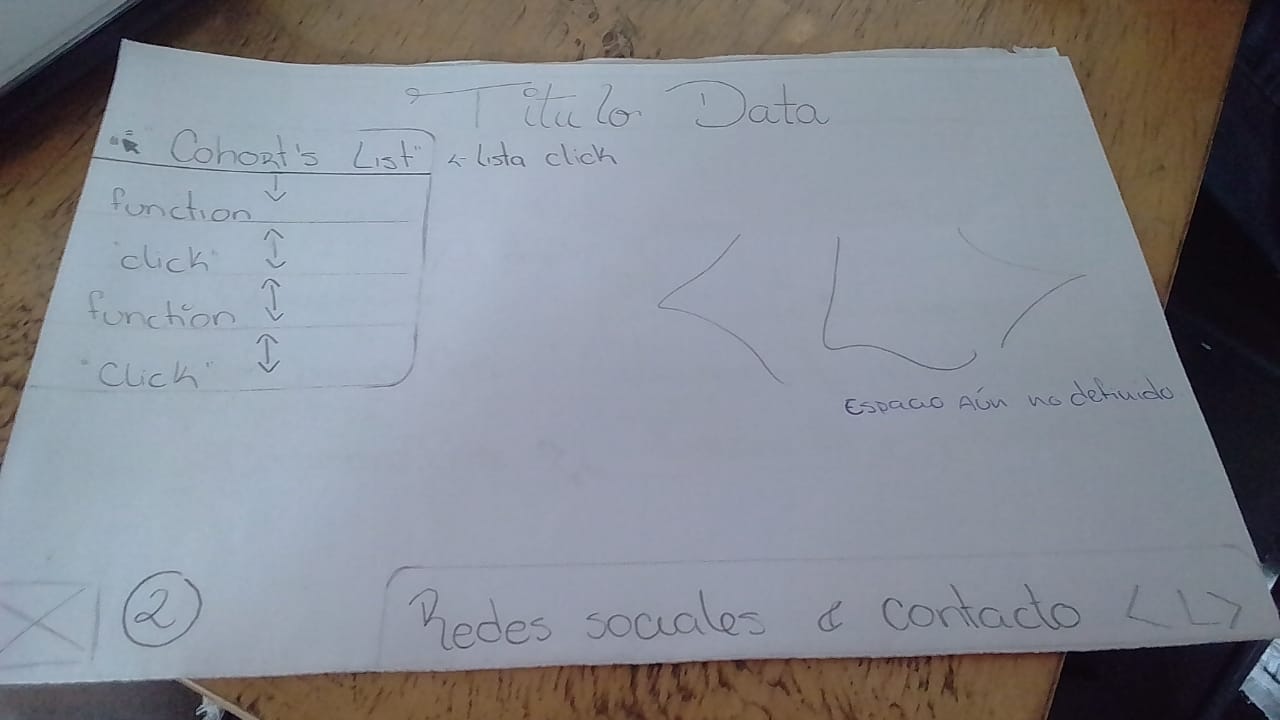 Titulo Data
"Cohort's List" ← lista click
function
"click"
function
"Click"
< L >
Espacio Aún no definido
2
Redes sociales & contacto < L >